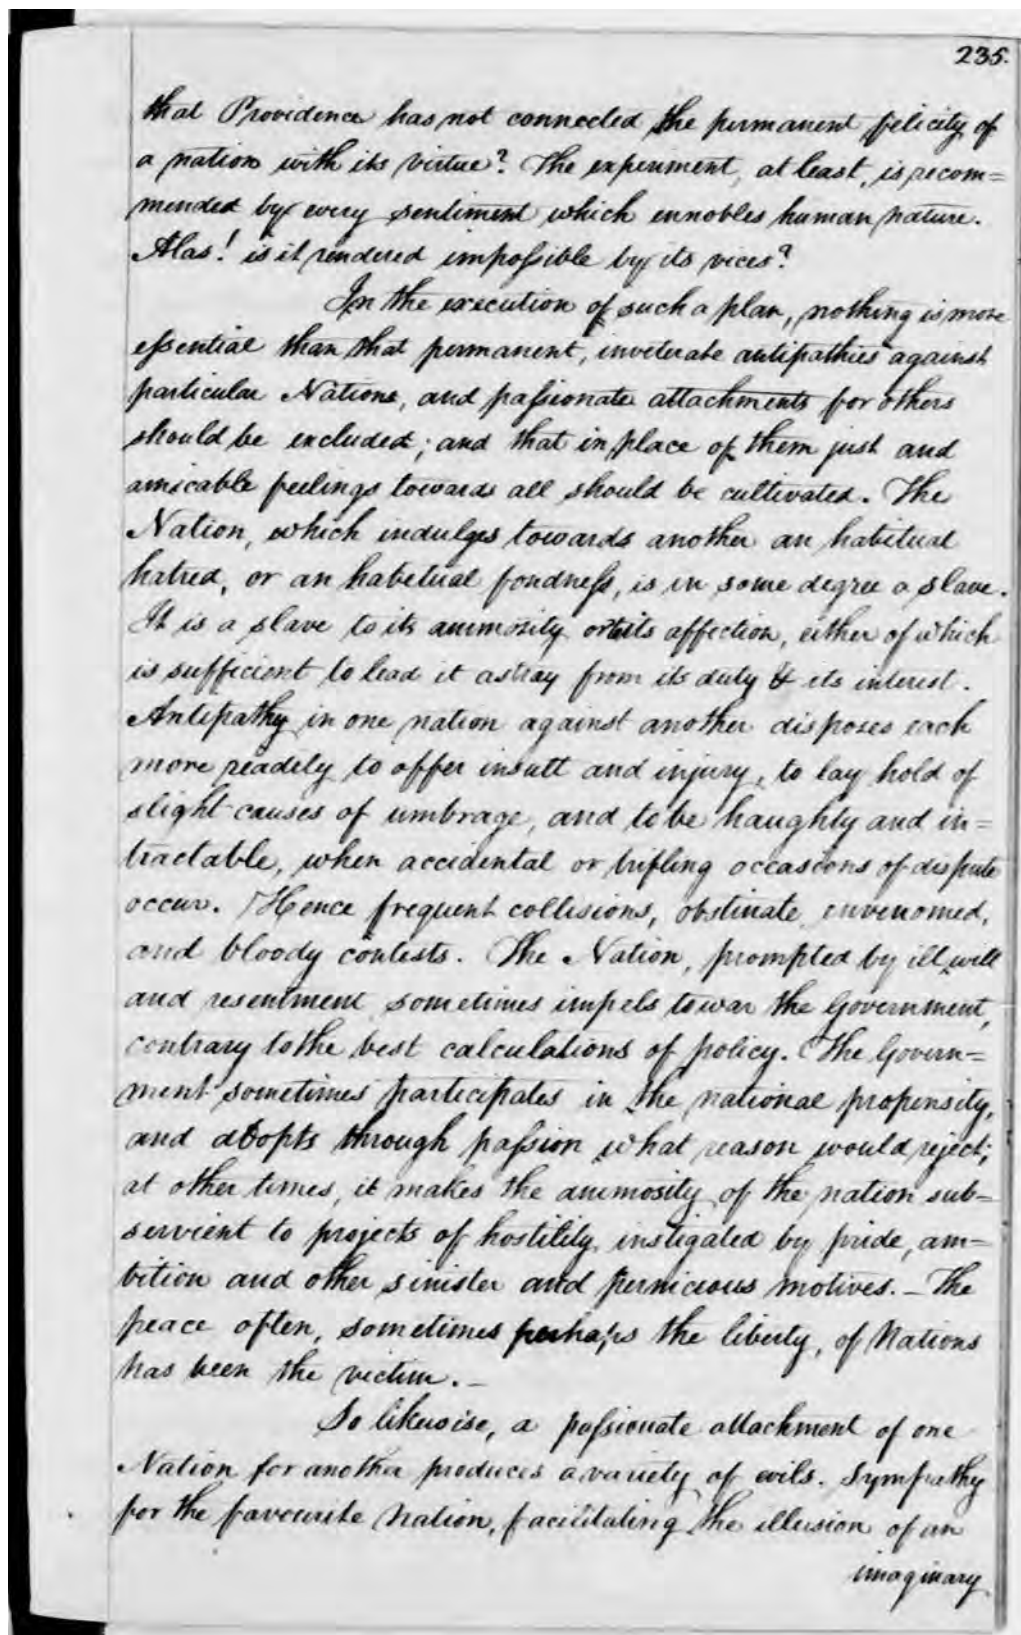 235.
that Providence has not connected the permanent felicity of
a nation with its virtue? The experiment, at least, is recom=
mended by every sentiment which ennobles human nature.
Alas! is it rendered impoſsible by its vices?
In the execution of such a plan, nothing is more
eſsential than that permanent, inveterate antipathies against
particular Nations, and paſsionate attachments for others
should be excluded; and that in place of them just and
amicable feelings towards all should be cultivated. The
Nation, which indulges towards another an habitual
hatred, or an habitual fondneſs, is in some degree a slave.
It is a slave to its animosity or to its affection, either of which
is sufficient to lead it astray from its duty & its interest.
Antipathy in one nation against another disposes each
more readily to offer insult and injury, to lay hold of
slight causes of umbrage, and to be haughty and in=
tractable, when accidental or trifling occasions of dispute
occur. Hence frequent collisions, obstinate, envenomed,
and bloody contests. The Nation, prompted by ill will
and resentment sometimes impels to war the Government,
contrary to the best calculations of policy. The Govern=
ment sometimes participates in the national propensity,
and adopts through paſsion what reason would reject;
at other times, it makes the animosity of the nation sub=
servient to projects of hostility instigated by pride, am=
bition and other sinister and pernicious motives. – The
peace often, sometimes perhaps the liberty, of Nations
has been the victim. –
So likewise, a paſsionate attachment of one
Nation for another produces a variety of evils. Sympathy
for the favourite Nation, facilitating the illusion of an
imaginary